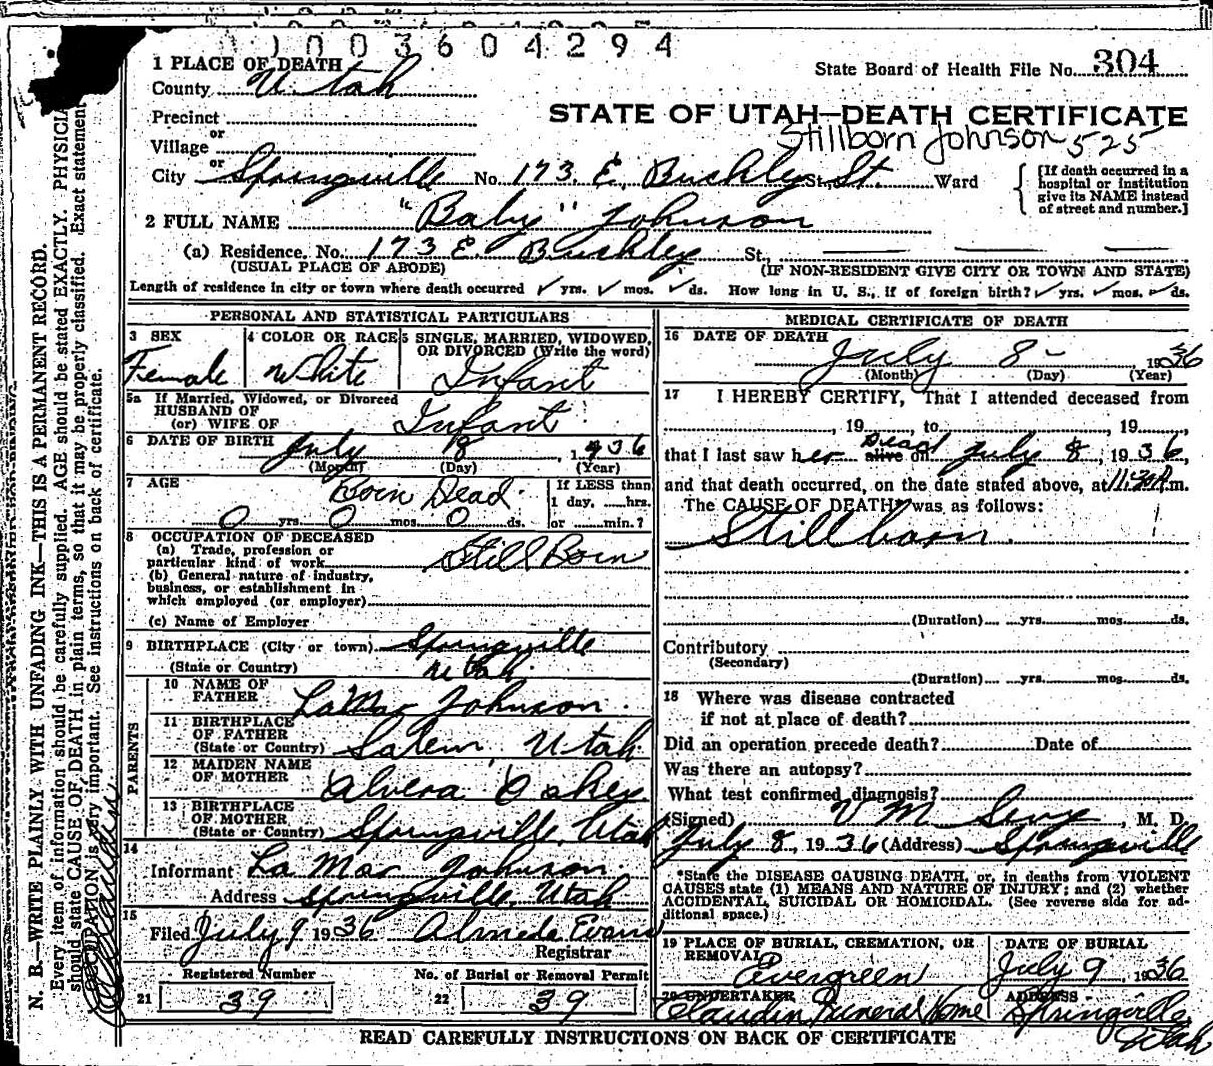 01003604294
1 PLACE OF DEATH
State Board of Health File No. 304
County Utah
STATE OF UTAH—DEATH CERTIFICATE
Precinct
or
Stillborn Johnson 525
Village
or
City Springville No. 173 E. Buckley St. St. Ward
[If death occurred in a hospital or institution give its NAME instead of street and number.]
2 FULL NAME "Baby" Johnson
(a) Residence. No. 173 E. Buckley St.,
(USUAL PLACE OF ABODE) (IF NON-RESIDENT GIVE CITY OR TOWN AND STATE)
Length of residence in city or town where death occurred ✓ yrs. ✓ mos. ✓ ds. How long in U. S., if of foreign birth? ✓ yrs. ✓ mos. ✓ ds.
PERSONAL AND STATISTICAL PARTICULARS
3 SEX 4 COLOR OR RACE 5 SINGLE, MARRIED, WIDOWED, OR DIVORCED (Write the word)
Female White Infant
5a If Married, Widowed, or Divorced
HUSBAND OF
(or) WIFE OF Infant
6 DATE OF BIRTH July 8, 1936
(Month) (Day) (Year)
7 AGE Born Dead. If LESS than
1 day, hrs.
0 yrs 0 mos 0 ds. or min.?
8 OCCUPATION OF DECEASED
(a) Trade, profession or
particular kind of work Still Born
(b) General nature of industry,
business, or establishment in
which employed (or employer)
(c) Name of Employer
9 BIRTHPLACE (City or town) Springville
(State or Country) Utah
PARENTS
10 NAME OF FATHER LaMar Johnson.
11 BIRTHPLACE OF FATHER
(State or Country) Salem, Utah
12 MAIDEN NAME OF MOTHER Alvera Oakey
13 BIRTHPLACE OF MOTHER
(State or Country) Springville, Utah
14
Informant La Mar Johnson.
Address Springville, Utah
15
Filed July 9 1936 Almeda Evans
Registrar
Registered Number No. of Burial or Removal Permit
21 39 22 39
MEDICAL CERTIFICATE OF DEATH
16 DATE OF DEATH
July 8- 1936
(Month) (Day) (Year)
17 I HEREBY CERTIFY, That I attended deceased from
, 19 , to , 19 ,
that I last saw her alive Dead on July 8, 1936,
and that death occurred, on the date stated above, at 11:30 P.m.
The CAUSE OF DEATH* was as follows:
Stillborn.
(Duration) yrs. mos. ds.
Contributory
(Secondary)
(Duration) yrs. mos. ds.
18 Where was disease contracted
if not at place of death?
Did an operation precede death? Date of
Was there an autopsy?
What test confirmed diagnosis?
(Signed) V M Sevy, M. D.
July 8, 1936 (Address) Springville
*State the DISEASE CAUSING DEATH, or, in deaths from VIOLENT
CAUSES state (1) MEANS AND NATURE OF INJURY; and (2) whether
ACCIDENTAL, SUICIDAL OR HOMICIDAL. (See reverse side for ad-
ditional space.)
19 PLACE OF BURIAL, CREMATION, OR REMOVAL DATE OF BURIAL
Evergreen July 9, 1936
20 UNDERTAKER ADDRESS
Claudin Funeral Home Springville, Utah
READ CAREFULLY INSTRUCTIONS ON BACK OF CERTIFICATE
N. B.—WRITE PLAINLY WITH UNFADING INK—THIS IS A PERMANENT RECORD.
Every item of information should be carefully supplied. AGE should be stated EXACTLY. PHYSICIA
should state CAUSE OF DEATH in plain terms, so that it may be properly classified. Exact statement
OCCUPATION is very important. See instructions on back of certificate.